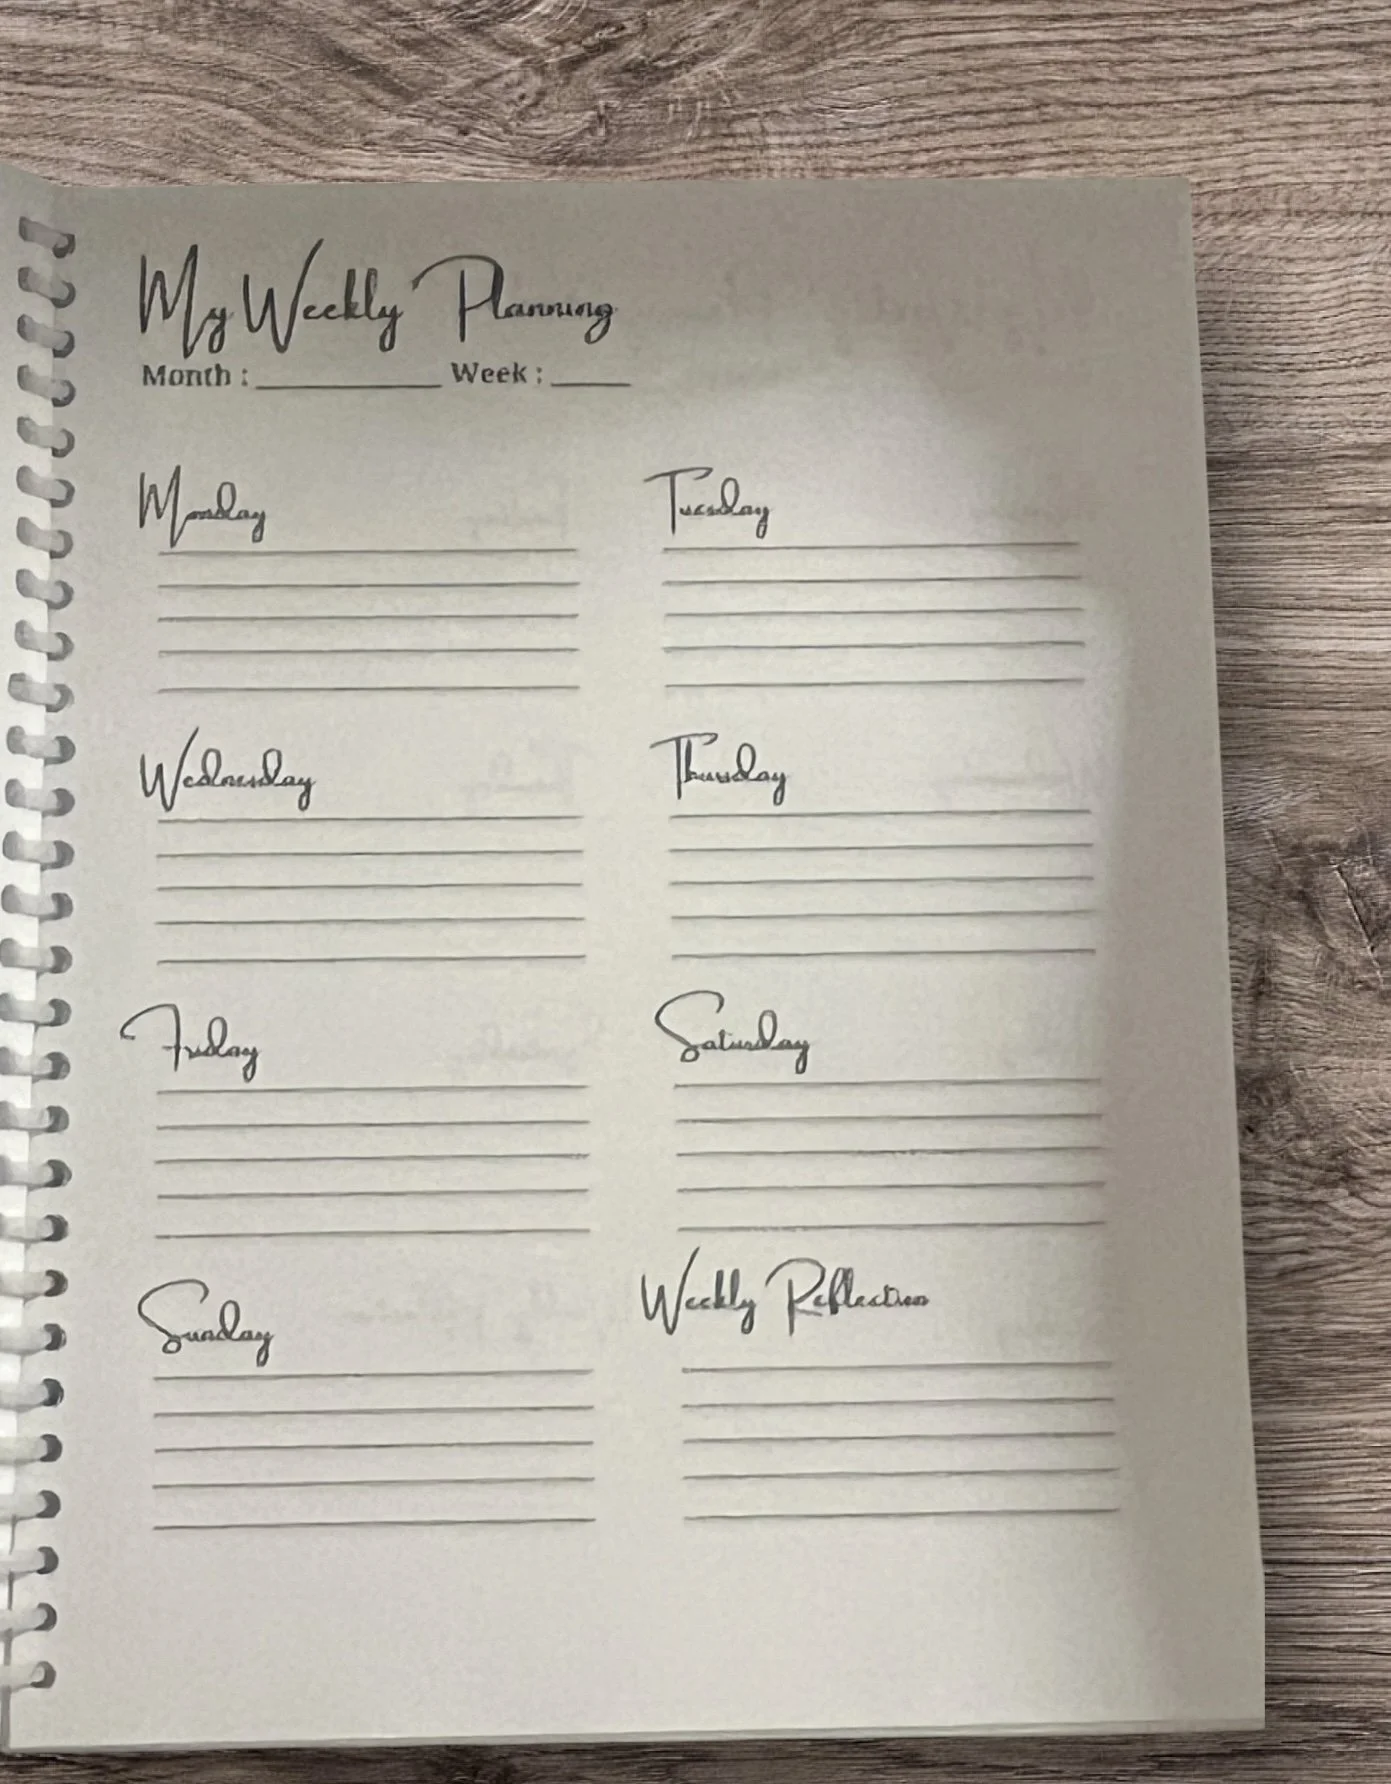 My Weekly Planning
Month : __________ Week : ____
Monday
Tuesday
Wednesday
Thursday
Friday
Saturday
Sunday
Weekly Reflection